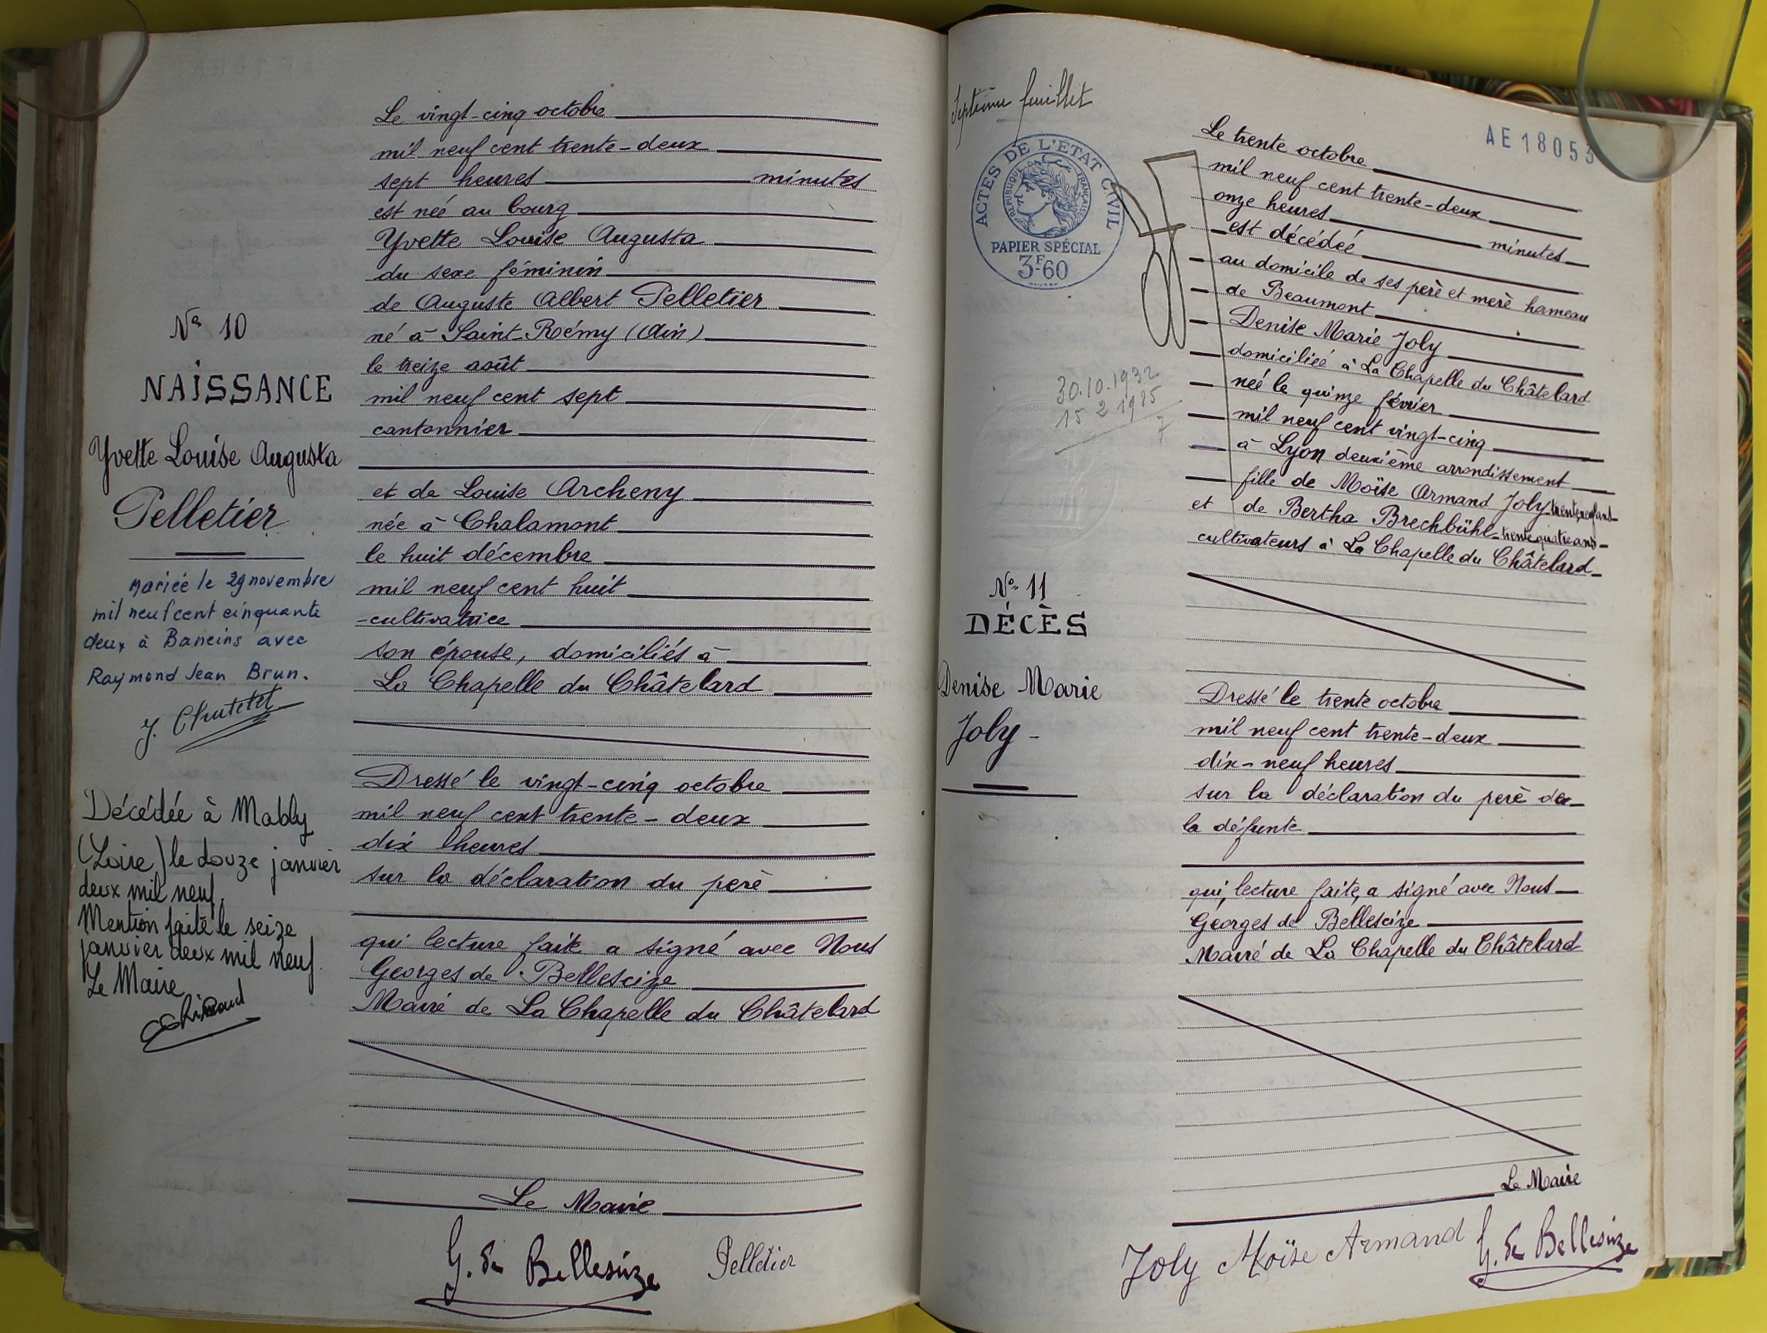 Le vingt-cinq octobre
mil neuf cent trente-deux
sept heures minutes
est née au bourg
Yvette Louise Augusta
du sexe féminin
de Auguste Albert Pelletier
né à Saint-Rémy (Ain)
le treize août
mil neuf cent sept
cantonnier
et de Louise Archeny
née à Chalamont
le huit décembre
mil neuf cent huit
-cultivatrice
son épouse, domiciliés à
La Chapelle du Châtelard
Dressé le vingt-cinq octobre
mil neuf cent trente-deux
dix heures
sur la déclaration du perè
qui lecture faite a signé avec Nous
Georges de Bellescize
Mairé de La Chapelle du Châtelard
Le Maire
G. de Bellescize Pelletier
No 10
NAISSANCE
Yvette Louise Augusta
Pelletier
Mariée le 29 novembre
mil neuf cent cinquante
deux à Baneins avec
Raymond Jean Brun.
Décédée à Mably
(Loire) le douze janvier
deux mil neuf.
Mention faite le seize
janvier deux mil neuf.
Le Maire
Septième feuillet
AE 18053
ACTES DE L'ETAT CIVIL
REPUBLIQUE FRANÇAISE
PAPIER SPÉCIAL
3F60
30.10.1932
15 2 1925
7
No 11
DÉCÈS
Denise Marie
Joly-
Le trente octobre
mil neuf cent trente-deux
onze heures minutes
est décédeé
au domicile de ses perè et merè hameau
de Beaumont
Denise Marie Joly
domicilieé à La Chapelle du Châtelard
neé le quinze février
mil neuf cent vingt-cinq
à Lyon deuxième arrondissement
fille de Moïse Armand Joly
et de Bertha Brechbühl trente quatre ans
cultivateurs à La Chapelle du Châtelard
Dressé le trente octobre
mil neuf cent trente-deux
dix-neuf heures
sur la déclaration du perè de
la défunte
qui, lecture faite, a signé avec Nous
Georges de Bellescize
Mairé de La Chapelle du Châtelard
Le Maire
Joly Moïse Armand G. de Bellescize